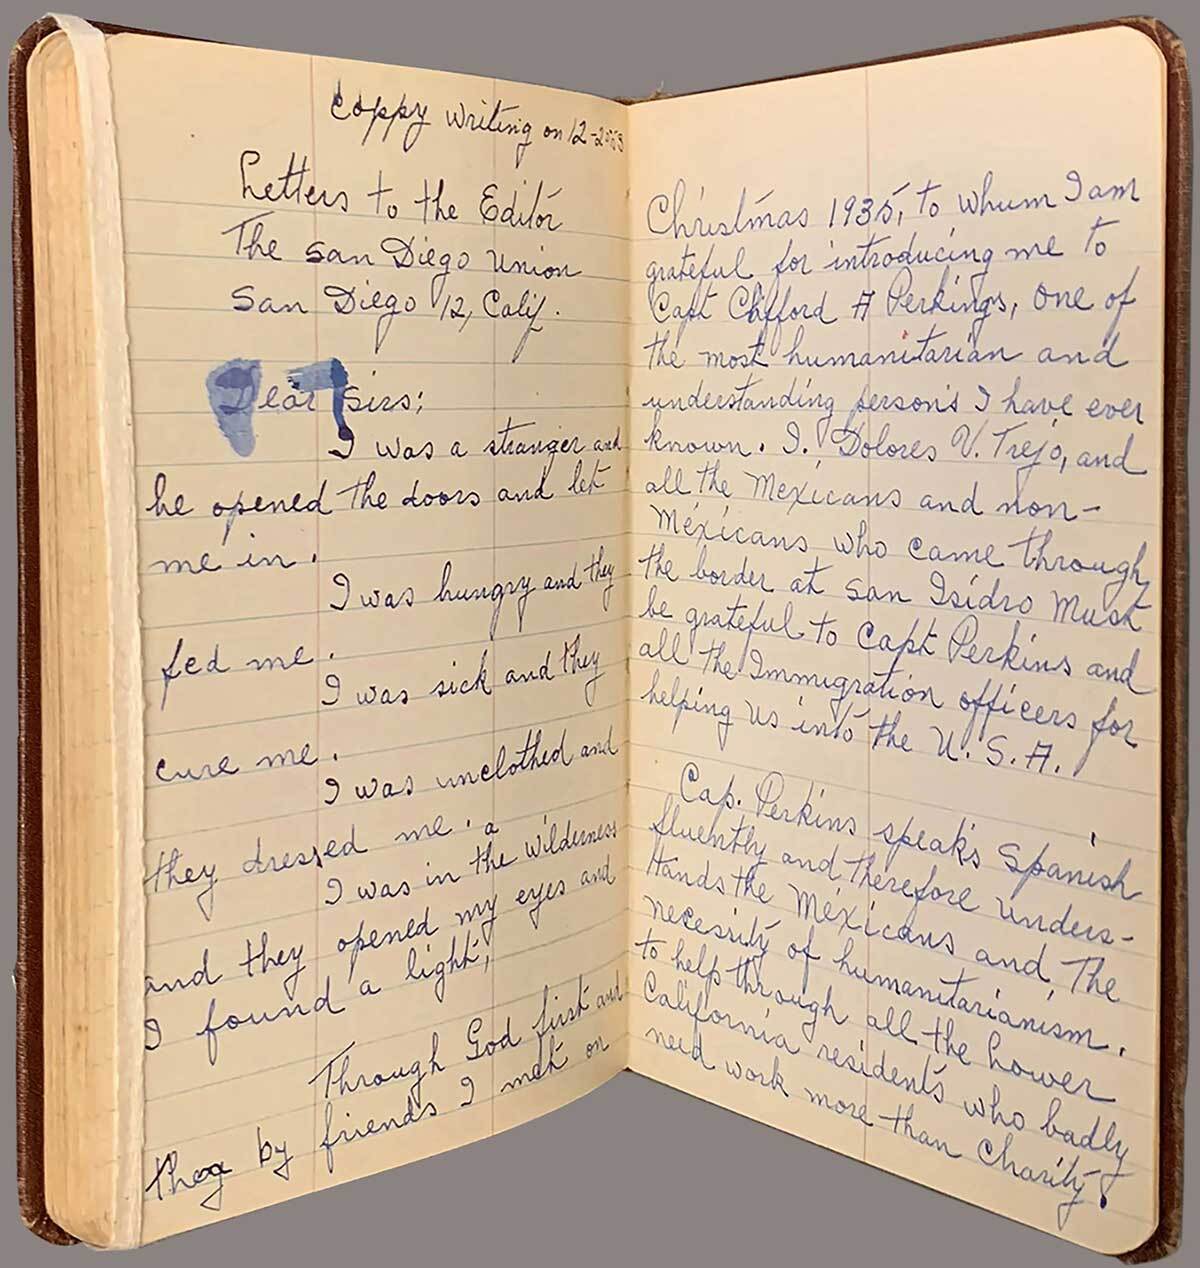 Coppy writing on 12-
Letters to the Editor
The San Diego Union
San Diego 12, Calif.
Dear Sirs;
I was a stranger and
he opened the doors and let
me in.
I was hungry and they
fed me.
I was sick and they
cure me.
I was unclothed and
they dressed me.
I was in the wilderness
and they opened my eyes and
I found a light;
Through God first and
by friends I met on
Christmas 1935, to whum I am
grateful for introducing me to
Capt Clifford A Perkings, one of
the most humanitarian and
understanding persons I have ever
known. I. Dolores V. Trejo, and
all the Mexicans and non-
Mexicans who came through
the border at San Isidro Must
be grateful to Capt Perkins and
all the Immigration officers for
helping us into the U.S.A.
Cap. Perkins speaks Spanish
fluently and therefore unders-
tands the Mexicans and, The
necessity of humanitarianism.
to help through all the hower
California residents who badly
need work more than Charity.